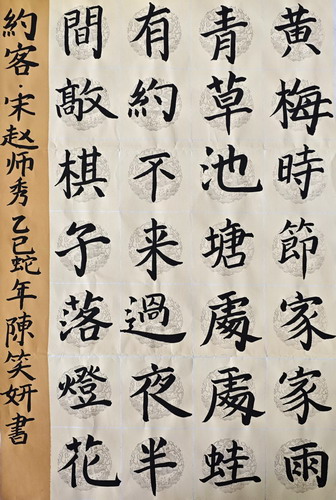 黄梅時節家家雨
青草池塘處處蛙
有約不来過夜半
間敲棋子落燈花
約客·宋赵师秀 乙巳蛇年 陳笑妍書